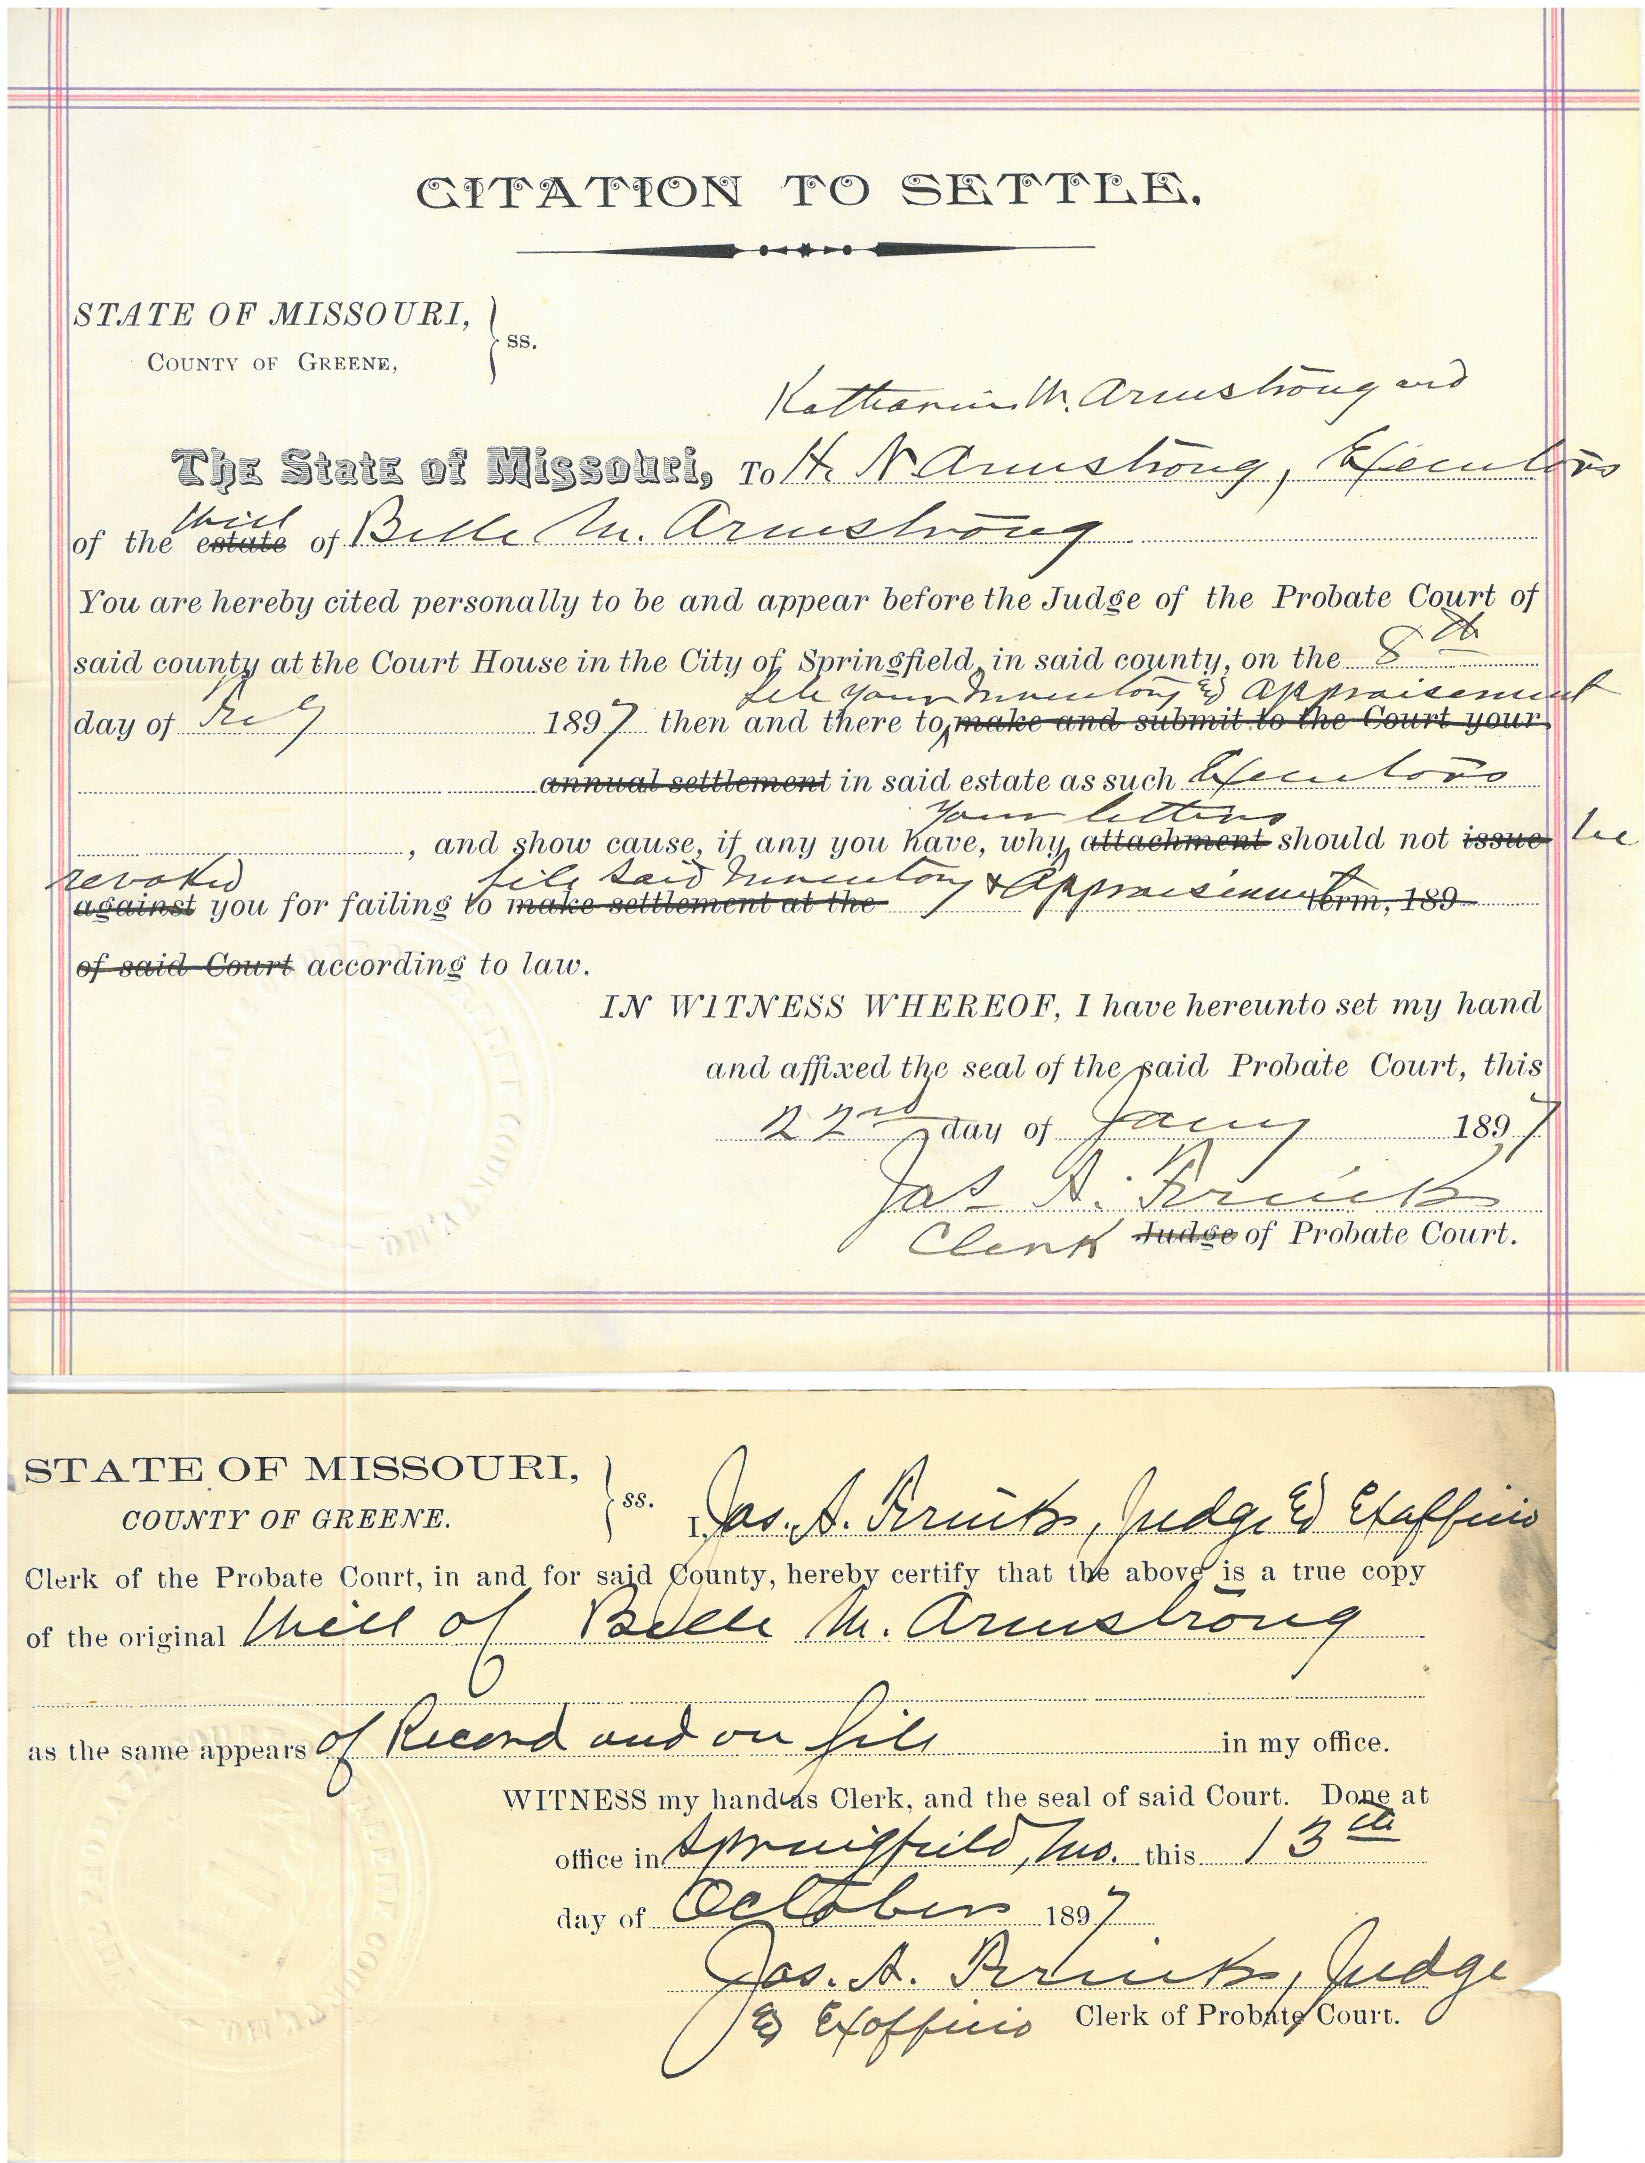 CITATION TO SETTLE.
STATE OF MISSOURI,
COUNTY OF GREENE, } ss.
Katharine M. Armstrong and
The State of Missouri, To H. N Armstrong, Executors
will
of the estate of Belle M. Armstrong
You are hereby cited personally to be and appear before the Judge of the Probate Court of
said county at the Court House in the City of Springfield, in said county, on the 8th
file your Inventory & Appraisement
day of Feby 1897 then and there to make and submit to the Court your
annual settlement in said estate as such Executors
your letters
, and show cause, if any you have, why attachment should not issue be
revoked file said Inventory & Appraisement
against you for failing to make settlement at the term, 189
of said Court according to law.
IN WITNESS WHEREOF, I have hereunto set my hand
and affixed the seal of the said Probate Court, this
22nd day of Jany 1897
Jas A.
Clerk Judge of Probate Court.
STATE OF MISSOURI,
COUNTY OF GREENE. } ss. I, Jas. A. Judge & Exofficio
Clerk of the Probate Court, in and for said County, hereby certify that the above is a true copy
of the original Will of Belle M. Armstrong
as the same appears of Record and on file in my office.
WITNESS my hand as Clerk, and the seal of said Court. Done at
office in Springfield, Mo. this 13th
day of October 1897
Jas. A. Judge
& Exofficio Clerk of Probate Court.